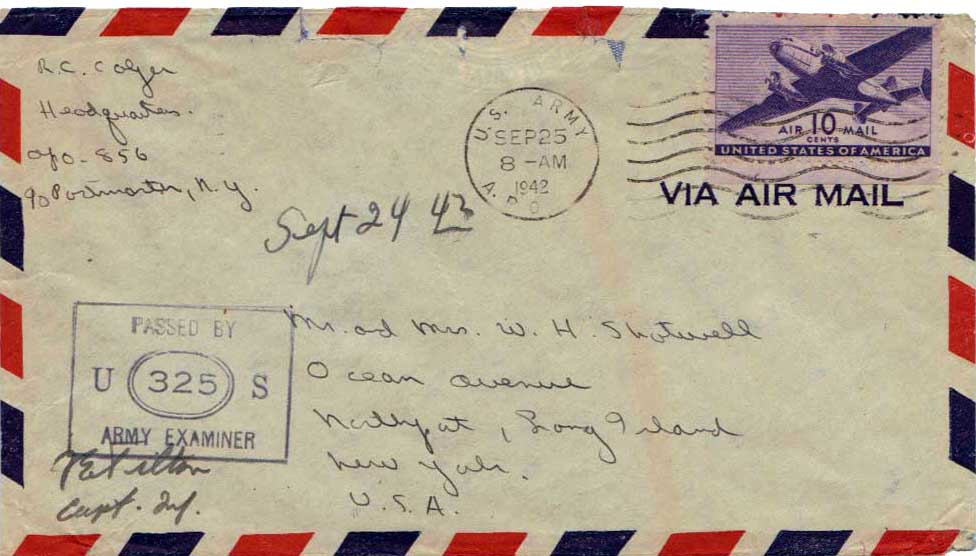 R.C. Colger
Headquarters.
APO - 856
c/o Postmaster, N.Y.
U.S. ARMY
SEP 25
8 - AM
1942
A.P.O.
AIR 10 MAIL
CENTS
UNITED STATES OF AMERICA
VIA AIR MAIL
Sept 24 43
PASSED BY
U 325 S
ARMY EXAMINER
Capt. Inf.
Mr. and Mrs. W. H. Shotwell
Ocean avenue
Northport, Long Island
New York.
U.S.A.